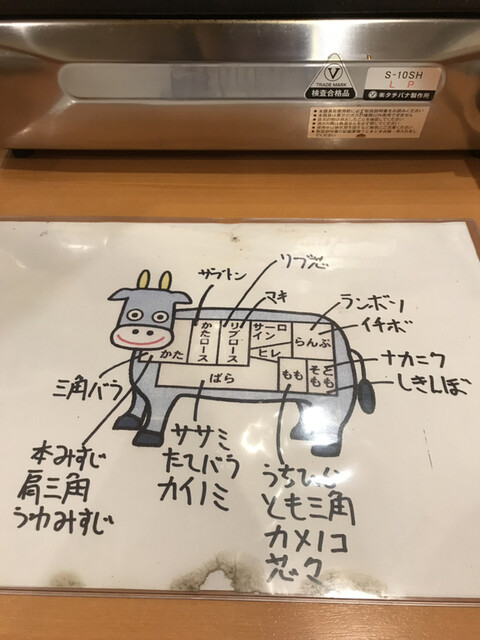 V
TRADE MARK
検査合格品
S-10SH
L P
㈱タチバナ製作所
ザブトン
リブ芯
マキ
ランボソ
イチボ
ナカニク
しきんぼ
かた
かたロース
リブロース
サーロイン
ヒレ
らんぷ
ばら
もも
そともも
三角バラ
本みすじ
肩三角
うわみすじ
ササミ
たてバラ
カイノミ
とも三角
カメノコ
芯々